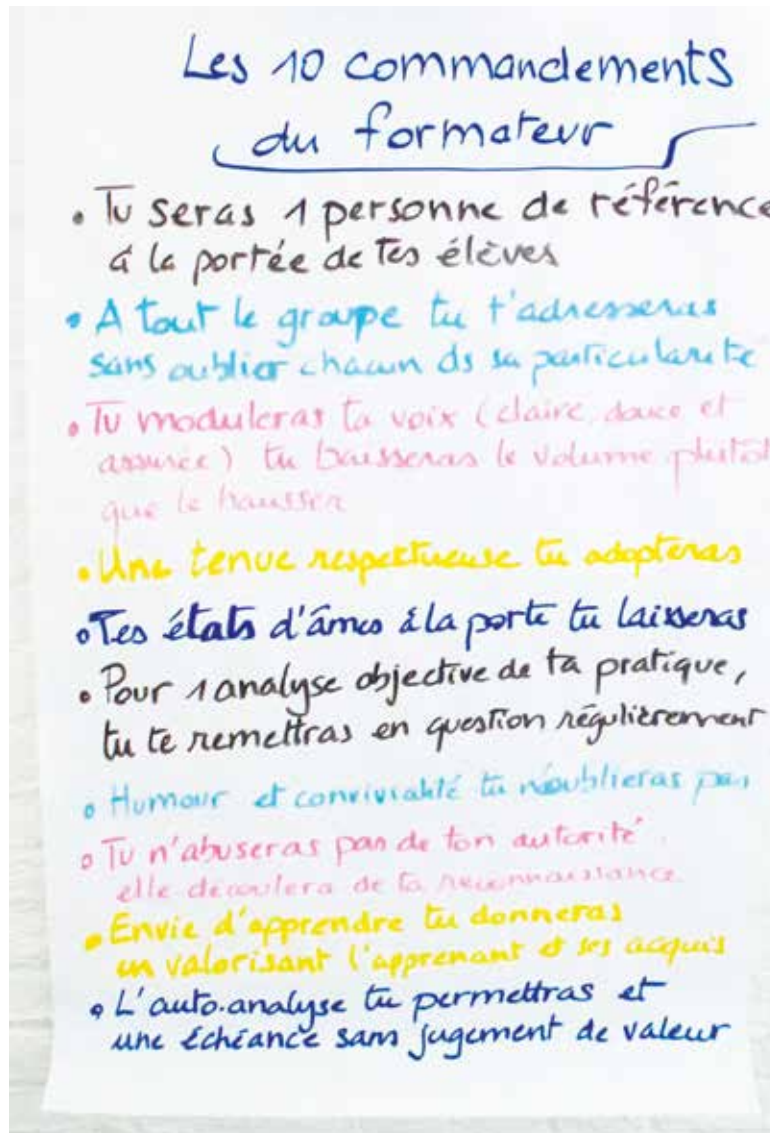 Les 10 commandements
du formateur
• Tu seras 1 personne de référence
à la portée de Tes élèves
• A tout le groupe tu t'adresseras
sans oublier chacun ds sa particularité
• Tu moduleras ta voix (claire, douce et
assurée) tu baisseras le volume plutôt
que le hausser
• Une tenue respectueuse tu adopteras
• Tes états d'âmes à la porte tu laisseras
• Pour 1 analyse objective de ta pratique,
tu te remettras en question régulièrement
• Humour et convivialité tu n'oublieras pas
• Tu n'abuseras pas de ton autorité.
elle découlera de ta reconnaissance.
• Envie d'apprendre tu donneras
en valorisant l'apprenant et ses acquis
• L'auto-analyse tu permettras et
une échéance sans jugement de valeur